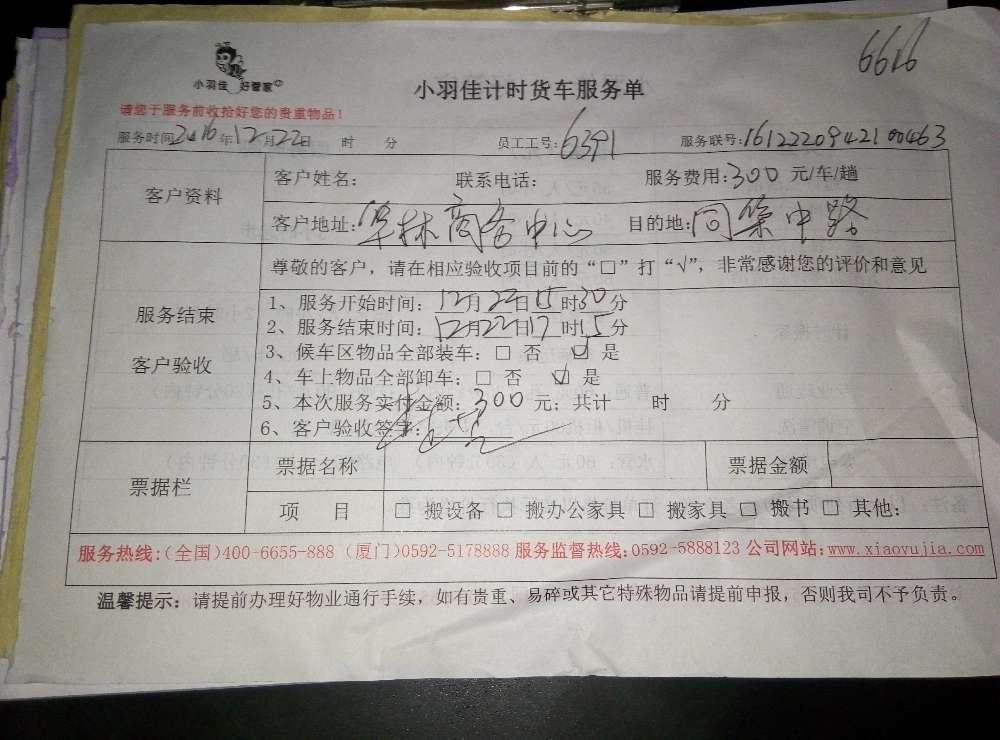 6616
小羽佳 好管家
小羽佳计时货车服务单
请您于服务前收拾好您的贵重物品！
服务时间2016年12月22日 时 分 员工工号：6391 服务联号：1612220942100463
客户资料
客户姓名： 联系电话： 服务费用：300 元/车/趟
客户地址：华林商务中心 目的地：同集中路
尊敬的客户，请在相应验收项目前的“□”打“√”，非常感谢您的评价和意见
服务结束
客户验收
1、服务开始时间：12月22日15时30分
2、服务结束时间：12月22日17时15分
3、候车区物品全部装车：□ 否 ☑ 是
4、车上物品全部卸车：□ 否 ☑ 是
5、本次服务实付金额：300 元；共计 时 分
6、客户验收签字：
票据栏
票据名称 票据金额
项 目 □ 搬设备 □ 搬办公家具 □ 搬家具 □ 搬书 □ 其他：
服务热线：（全国）400-6655-888（厦门）0592-5178888 服务监督热线：0592-5888123 公司网站：www.xiaoyujia.com
温馨提示：请提前办理好物业通行手续，如有贵重、易碎或其它特殊物品请提前申报，否则我司不予负责。